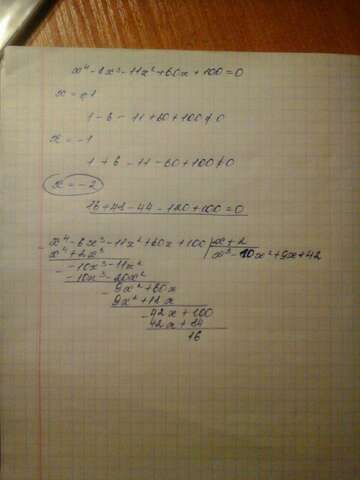 x⁴ - 6x³ - 11x² + 60x + 100 = 0
x = 1
1 - 6 - 11 + 60 + 100 ≠ 0
x = -1
1 + 6 - 11 - 60 + 100 ≠ 0
x = -2
16 + 48 - 44 - 120 + 100 = 0
x⁴ - 6x³ - 11x² + 60x + 100 | x + 2
x⁴ + 2x³ x³ - 10x² + 9x + 42
- 10x³ - 11x²
- 10x³ - 20x²
- 9x² + 60x
9x² + 18x
- 42x + 100
42x + 84
16